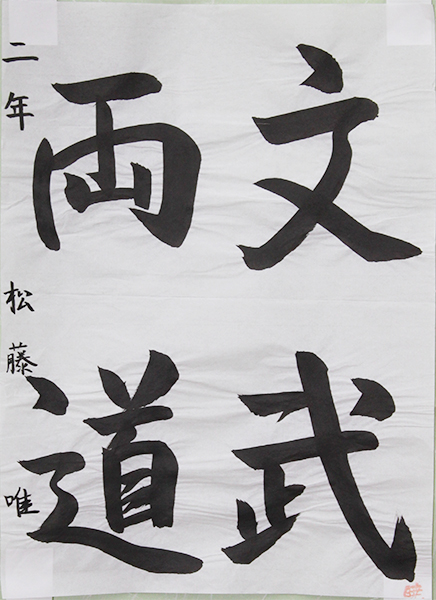 文武
両道
二年 松藤唯